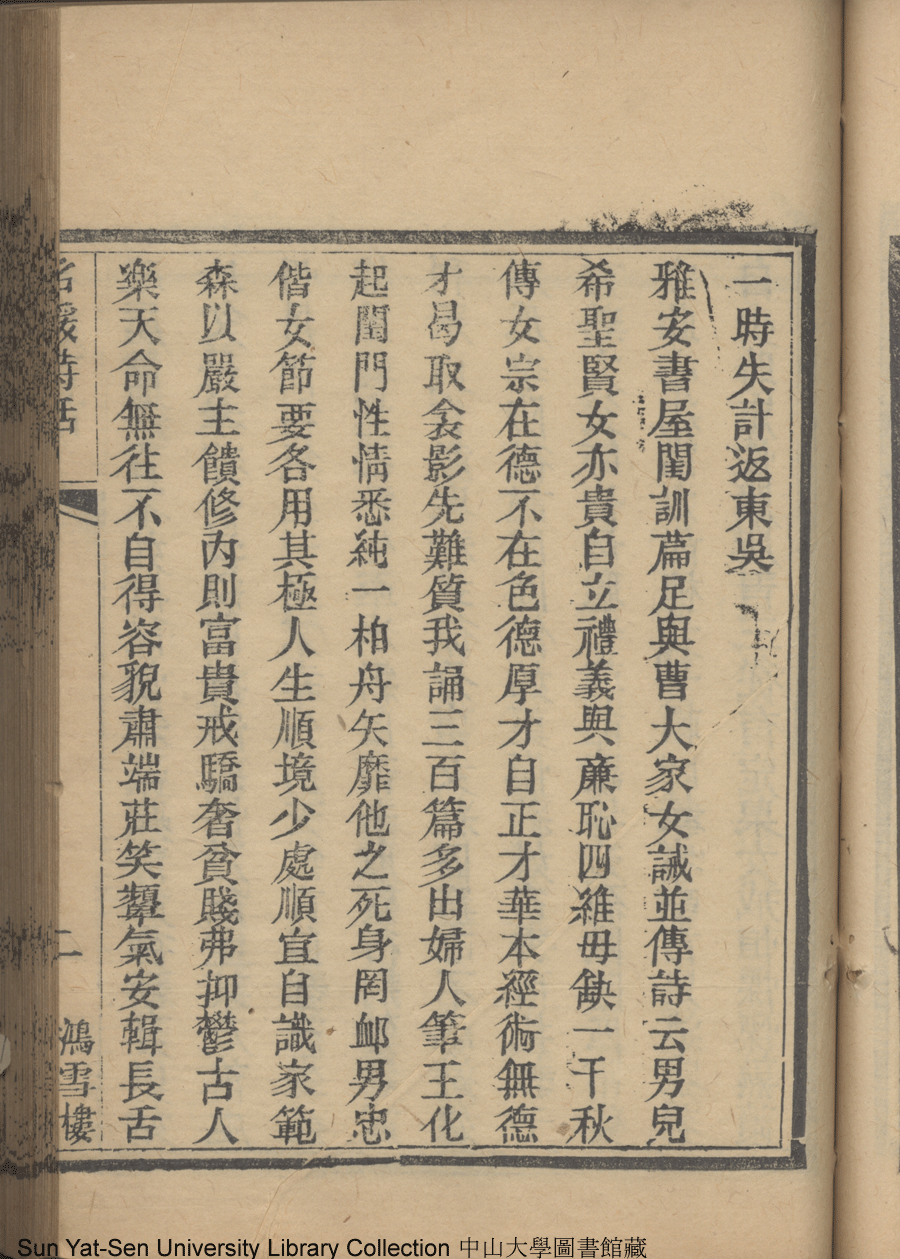 一時失計返東吳
雅安書屋閨訓篇足與曹大家女誡並傳詩云男兒
希聖賢女亦貴自立禮義與廉恥四維毋缺一千秋
傳女宗在德不在色德厚才自正才華本經術無德
才曷取衾影先難質我誦三百篇多出婦人筆王化
起閨門性情悉純一柏舟矢靡他之死身罔卹男忠
偕女節要各用其極人生順境少處順宜自識家範
森以嚴主饋修內則富貴戒驕奢貧賤弗抑鬱古人
樂天命無往不自得容貌肅端莊笑顰氣安輯長舌
名媛詩話
二
鴻雪樓
Sun Yat-Sen University Library Collection 中山大學圖書館藏